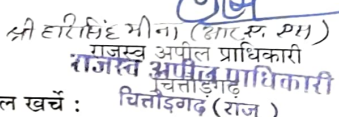 श्री हरिसिंह मीना (आर. एस. एस)
राजस्व अपील प्राधिकारी
राजस्व अपील प्राधिकारी
चित्तौड़गढ़
ल खर्चे : चित्तौड़गढ़ (राज)